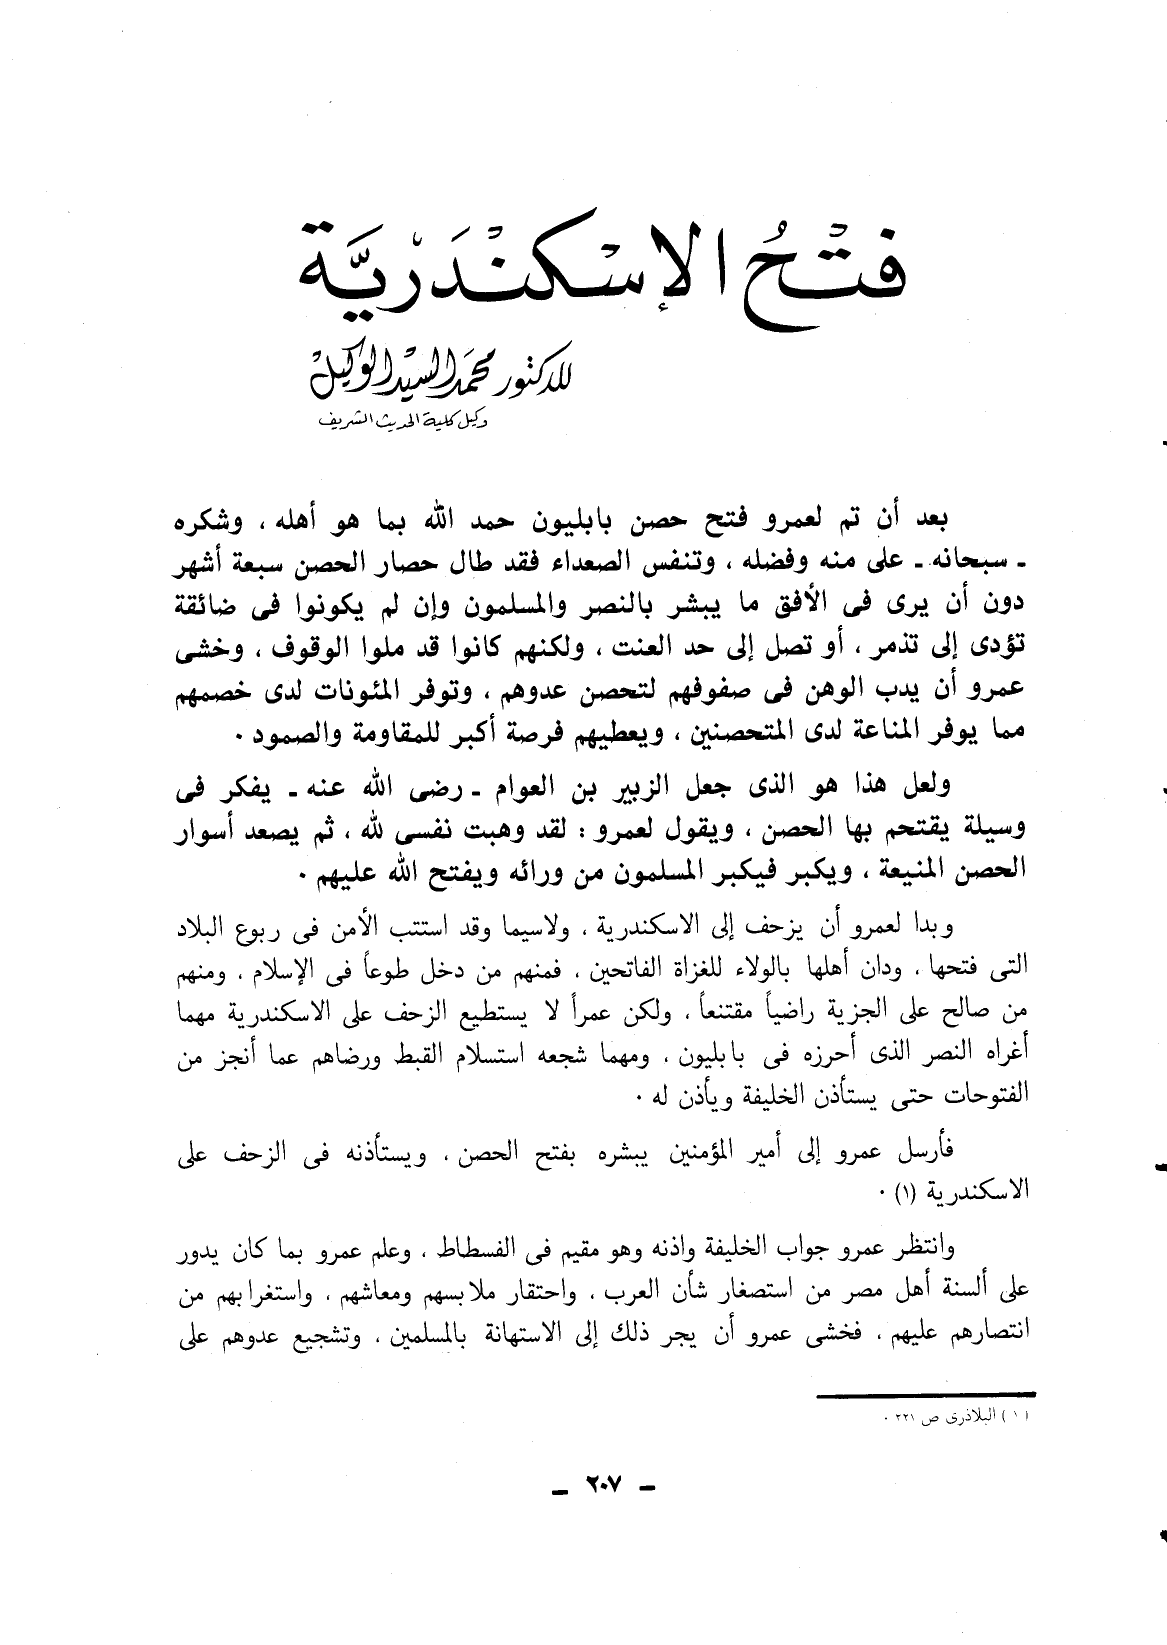 فَتْحُ الإِسْكَنْدَرْيَّة
للدكتور محمد السيد الوكيل
وكيل كلية الحديث الشريف
بعد أن تم لعمرو فتح حصن بابليون حمد الله بما هو أهله ، وشكره
ـ سبحانه ـ على منه وفضله ، وتنفس الصعداء فقد طال حصار الحصن سبعة أشهر
دون أن يرى فى الأفق ما يبشر بالنصر والمسلمون وإن لم يكونوا فى ضائقة
تؤدى إلى تذمر ، أو تصل إلى حد العنت ، ولكنهم كانوا قد ملوا الوقوف ، وخشى
عمرو أن يدب الوهن فى صفوفهم لتحصن عدوهم ، وتوفر المئونات لدى خصمهم
مما يوفر المناعة لدى المتحصنين ، ويعطيهم فرصة أكبر للمقاومة والصمود ٠
ولعل هذا هو الذى جعل الزبير بن العوام ـ رضى الله عنه ـ يفكر فى
وسيلة يقتحم بها الحصن ، ويقول لعمرو : لقد وهبت نفسى لله ، ثم يصعد أسوار
الحصن المنيعة ، ويكبر فيكبر المسلمون من ورائه ويفتح الله عليهم ٠
وبدا لعمرو أن يزحف إلى الاسكندرية ، ولاسيما وقد استتب الأمن فى ربوع البلاد
التى فتحها ، ودان أهلها بالولاء للغزاة الفاتحين ، فمنهم من دخل طوعاً فى الإسلام ، ومنهم
من صالح على الجزية راضياً مقتنعاً ، ولكن عمرأ لا يستطيع الزحف على الاسكندرية مهما
أغراه النصر الذى أحرزه فى بابليون ، ومهما شجعه استسلام القبط ورضاهم عما أنجز من
الفتوحات حتى يستأذن الخليفة ويأذن له ٠
فأرسل عمرو إلى أمير المؤمنين يبشره بفتح الحصن ، ويستأذنه فى الزحف على
الاسكندرية (١) ٠
وانتظر عمرو جواب الخليفة واذنه وهو مقيم فى الفسطاط ، وعلم عمرو بما كان يدور
على ألسنة أهل مصر من استصغار شأن العرب ، واحتقار ملابسهم ومعاشهم ، واستغرابهم من
انتصارهم عليهم ، فخشى عمرو أن يجر ذلك إلى الاستهانة بالمسلمين ، وتشجيع عدوهم على
(١) البلاذرى ص ٢٢١ ٠
ـ ٢٠٧ ـ